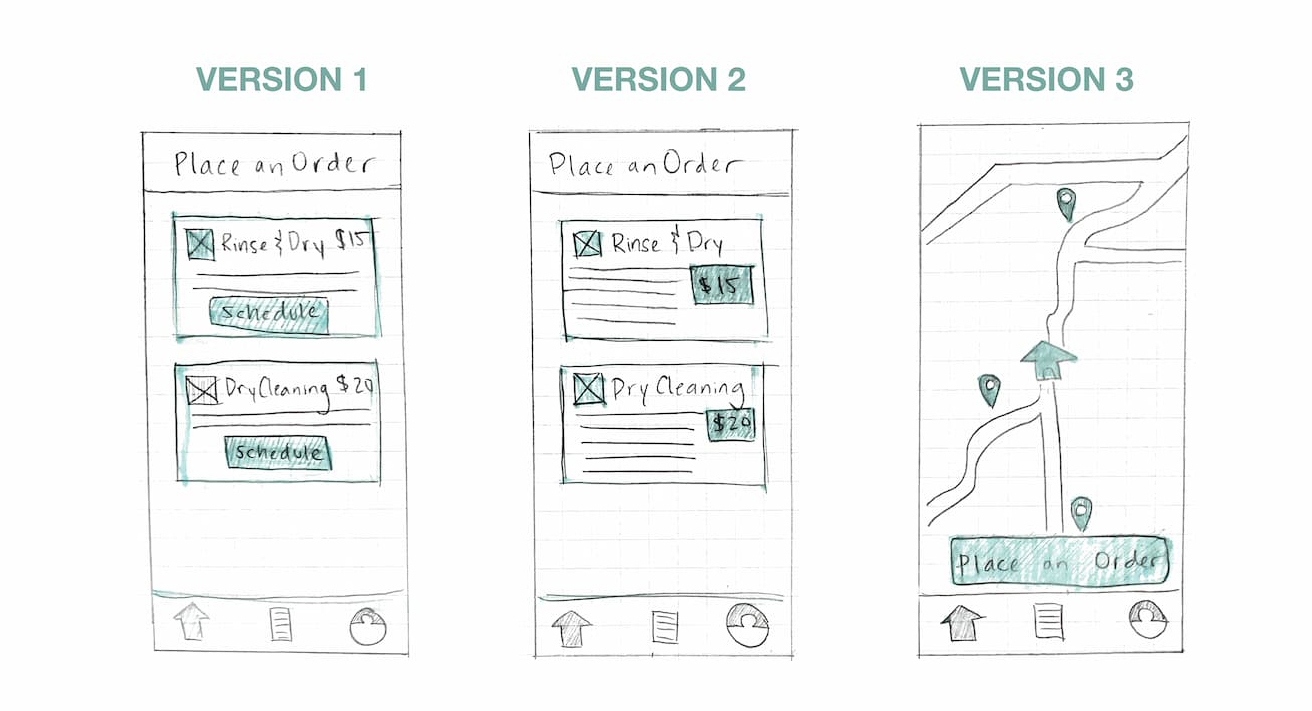 VERSION 1
Place an Order
Rinse & Dry $15
Schedule
Dry Cleaning $20
Schedule
VERSION 2
Place an Order
Rinse & Dry
$15
Dry Cleaning
$20
VERSION 3
Place an Order